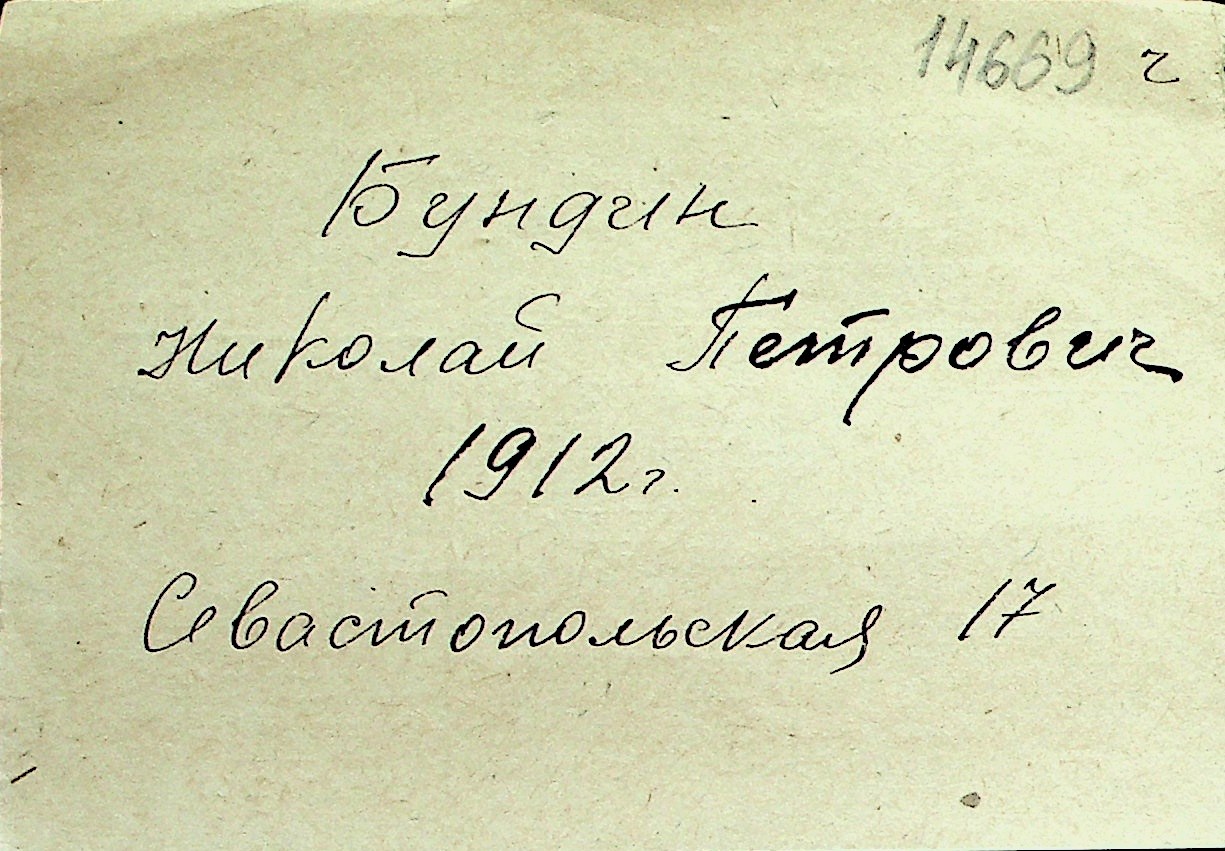 14669 ч
Бундин
Николай Петрович
1912г.
Севастопольская 17